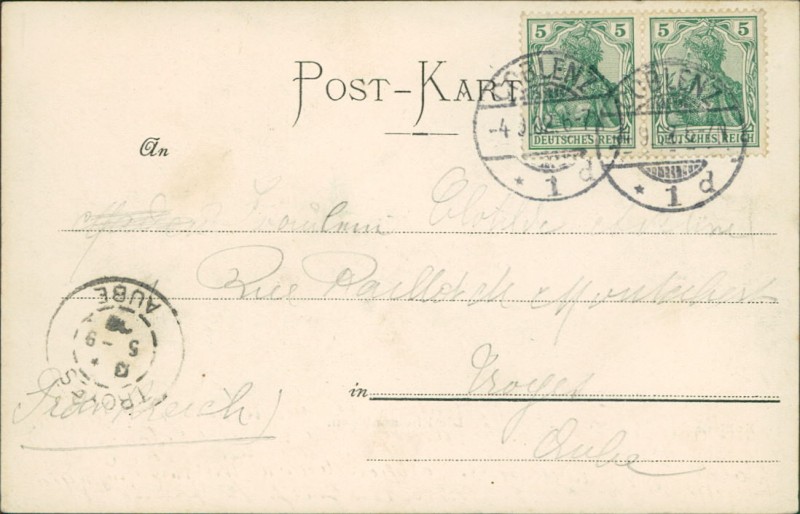 5 5 5 5
DEUTSCHES REICH DEUTSCHES REICH
COBLENZ
-4.9.02.6-7
* 1 d
COBLENZ
* 1 d
POST-KARTE
An
Fräulein Clotilde
Rue Paillot de Montabert
in Troyes
Aube
Frankreich)
TROYES
AUBE
5 - 9